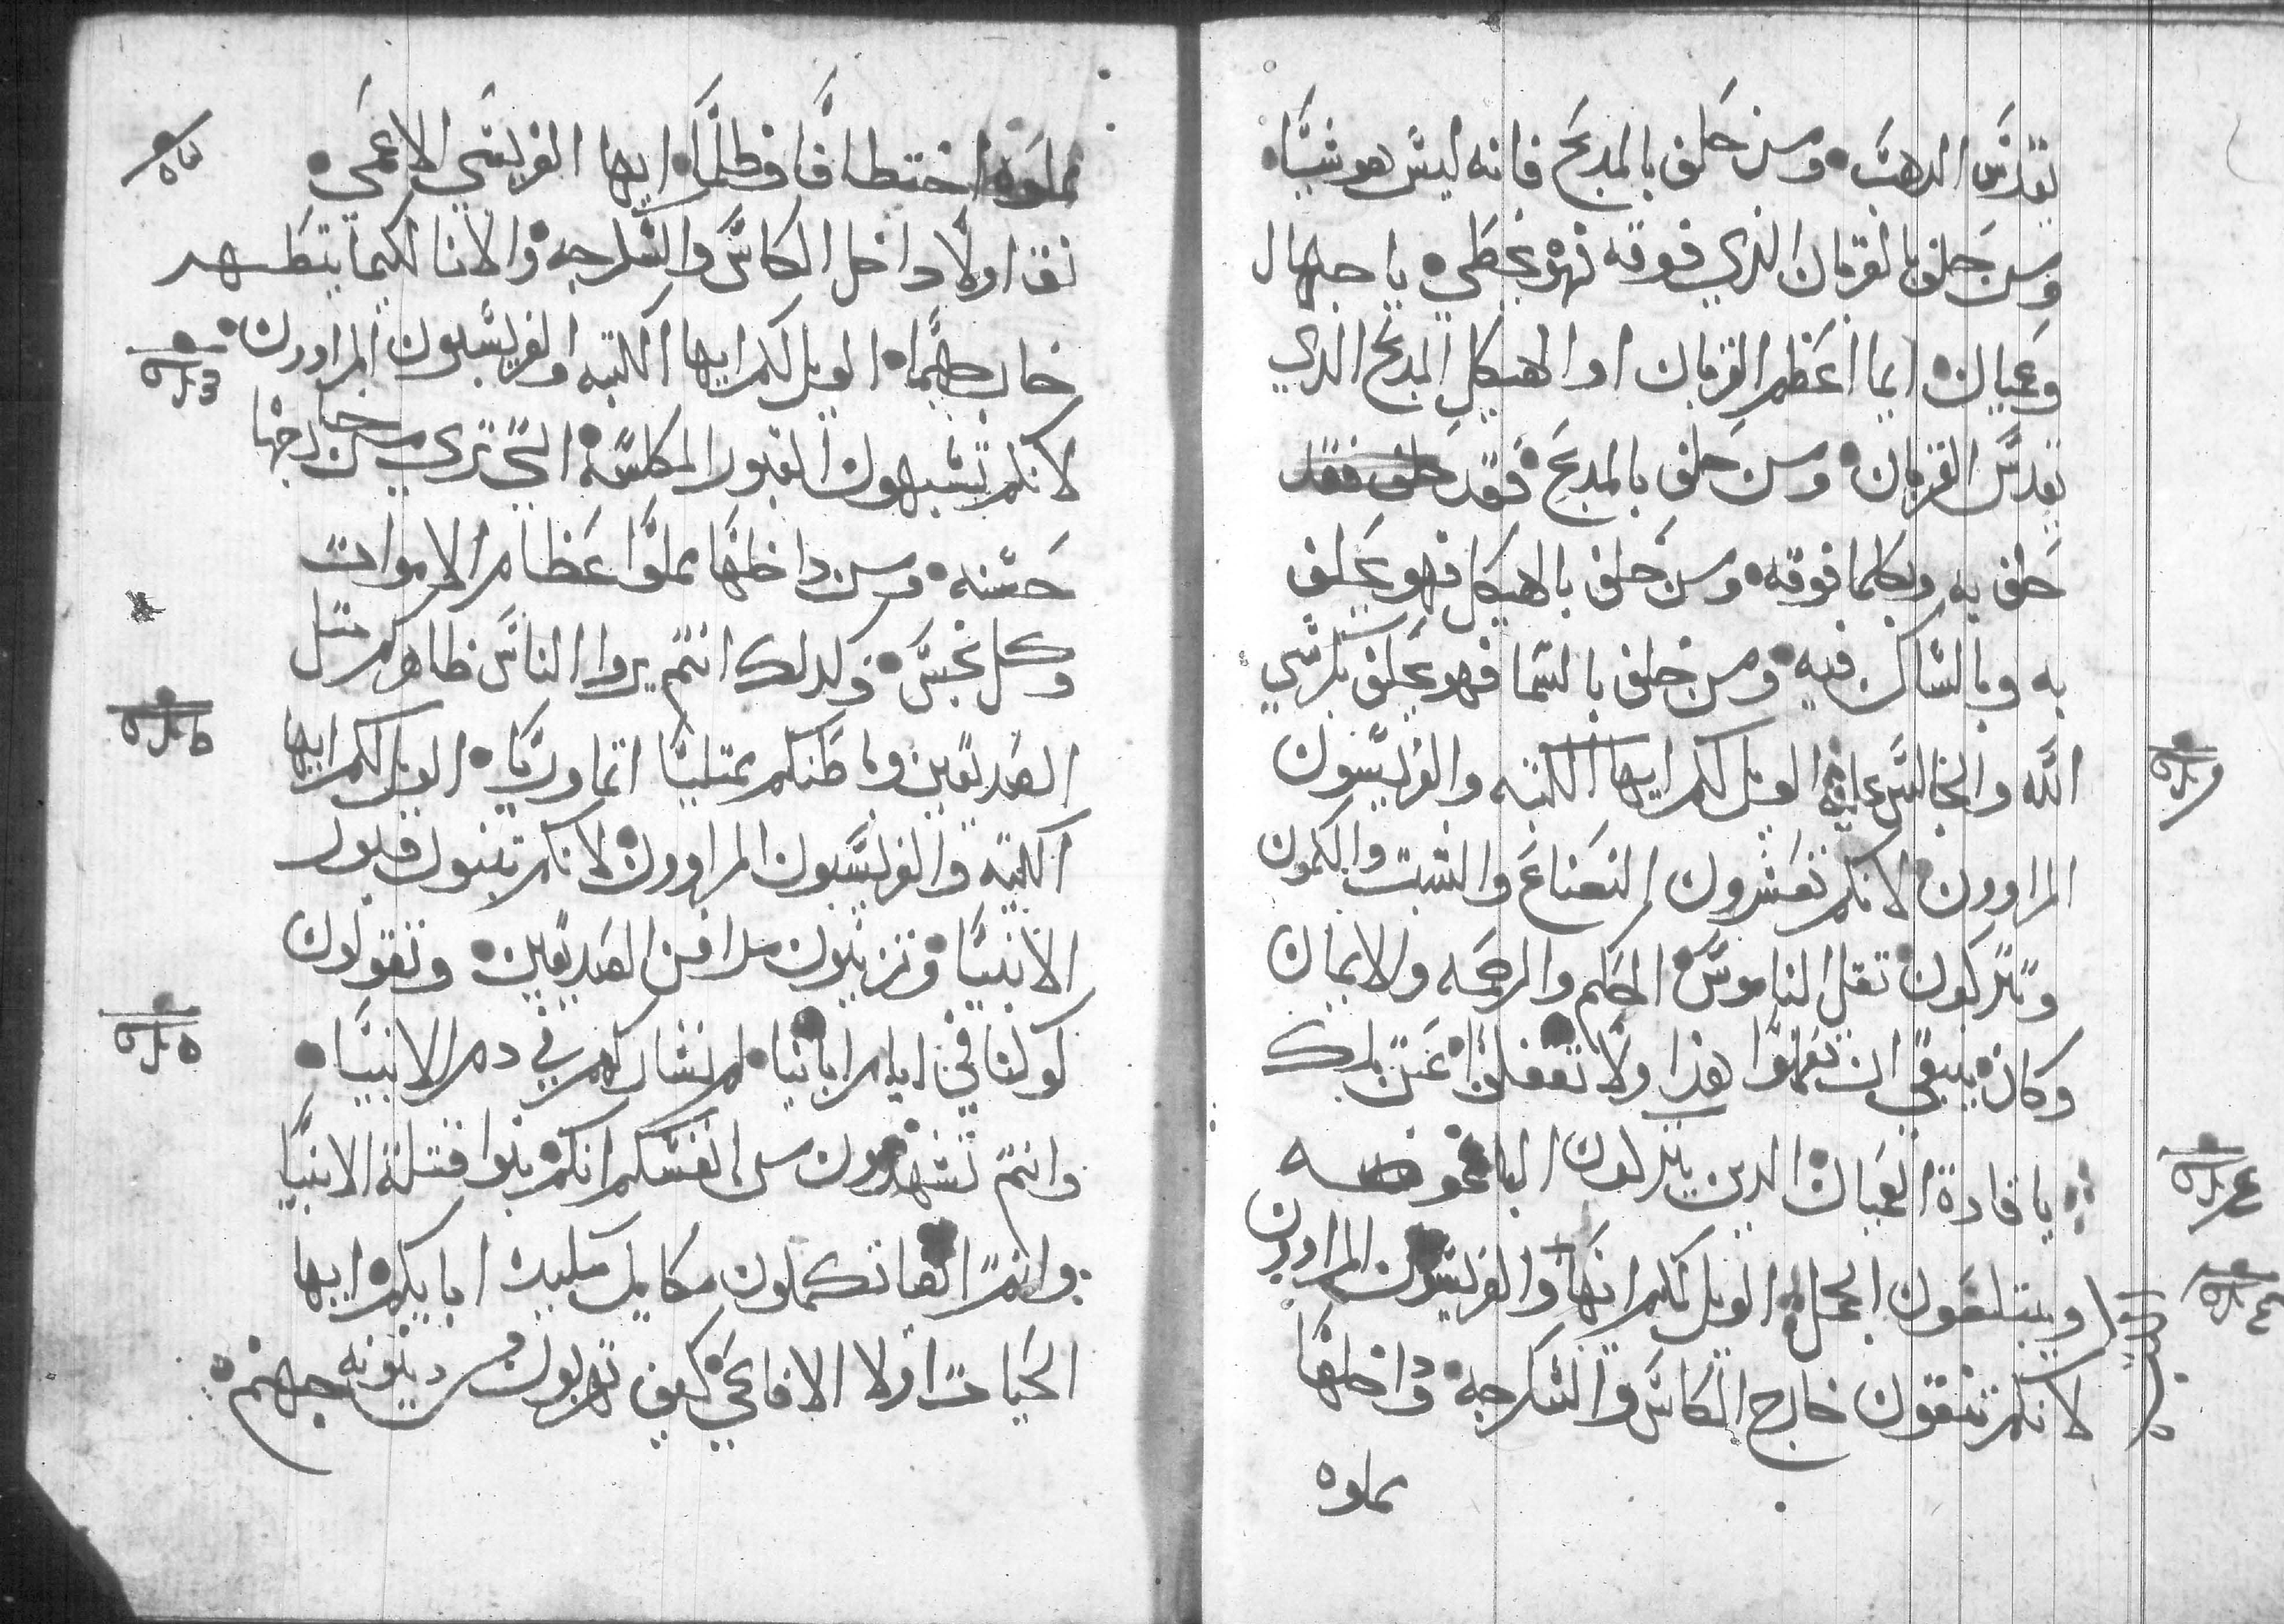 يقدس الدهب ومن حلف بالمدبح فانه ليس هو شيا
ومن حلف بالقربان الذي فوقه فهو يخطي يا جهال
وعميان ايما اعظم القربان او الهيكل المدبح الذي
يقدس القربان ومن حلف بالمدبح فقد حلف فقد
حلف به وبكلما فوقه ومن حلف بالهيكل فهو يحلف
به وبالساكن فيه ومن حلف بالسما فهو يحلف بكرسي
الله والجالس عليه الويل لكم ايها الكتبه والفريسيون
المراوون لانكم تعشرون النعناع والشبت والكمون
وتتركون تقل الناموس الحكم والرحمه والايمان
وكان ينبغي ان تعملوا هذا ولا تغفلوا عن تلك
يا قادة العميان الدين يتركون الباعوضه
ويبتلعون الجمل الويل لكم ايها والفريسيون المراوون
الكتبه
لانكم تنقون خارج الكاس والسكرجه وداخلها
مملوه
مملوه اختطافا وظلما ايها الفريسي الاعمي
نق اولا داخل الكاس والسكرجه والانا لكيما يتطهر
خارجهما الويل لكم ايها الكتبه والفريسيون المراوون
لانكم تشبهون القبور المكلسه التي تري من خارجها
حسنه ومن داخلها مملوا عظام الاموات
وكل نجس وكدلك انتم يروا الناس ظاهركم مثل
الصديقين وباطنكم ممتليا اتما وريا الويل لكم ايها
الكتبه والفريسيون المراوون لانكم تبنون قبور
الانبيا وتزينون مدافن الصديقين وتقولون
لو كنا في ايام ابائنا لم نشاركهم في دم الانبيا
وانتم تشهدون علي انفسكم انكم بنوا قتلة الانبيا
وانتم ايضا تكملون مكاييل ابايكم ايها
الحيات اولاد الافاعي كيف تهربون من دينونه جهنم